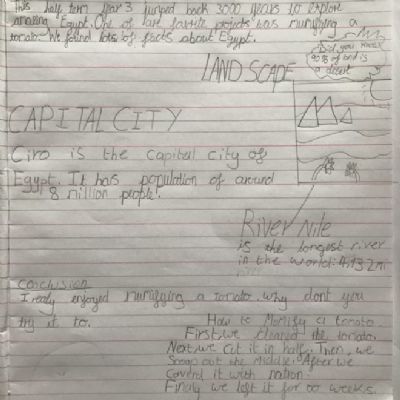 This half term year 3 jumped back 3000 years to explore
amazing Egypt. One of are favrite projects was mumifying a
tomato. We found lots of facts about Egypt.
Did you know
90% of land is
a desert
LANDSCAPE
CAPITAL CITY
Ciro is the capital city of
Egypt. It has population of around
8 million people!
River Nile
is the longest river
in the world: 4,132mi
conclusion
I realy enjoyed mumifying a tomato. why dont you
try it to.
How to Momify a tomato.
First, we cleaned the tomato.
Next, we cut it in half. Then, we
Scoop out the Middle. After we
Coverd it with natron.
Finaly we left it for weeks.